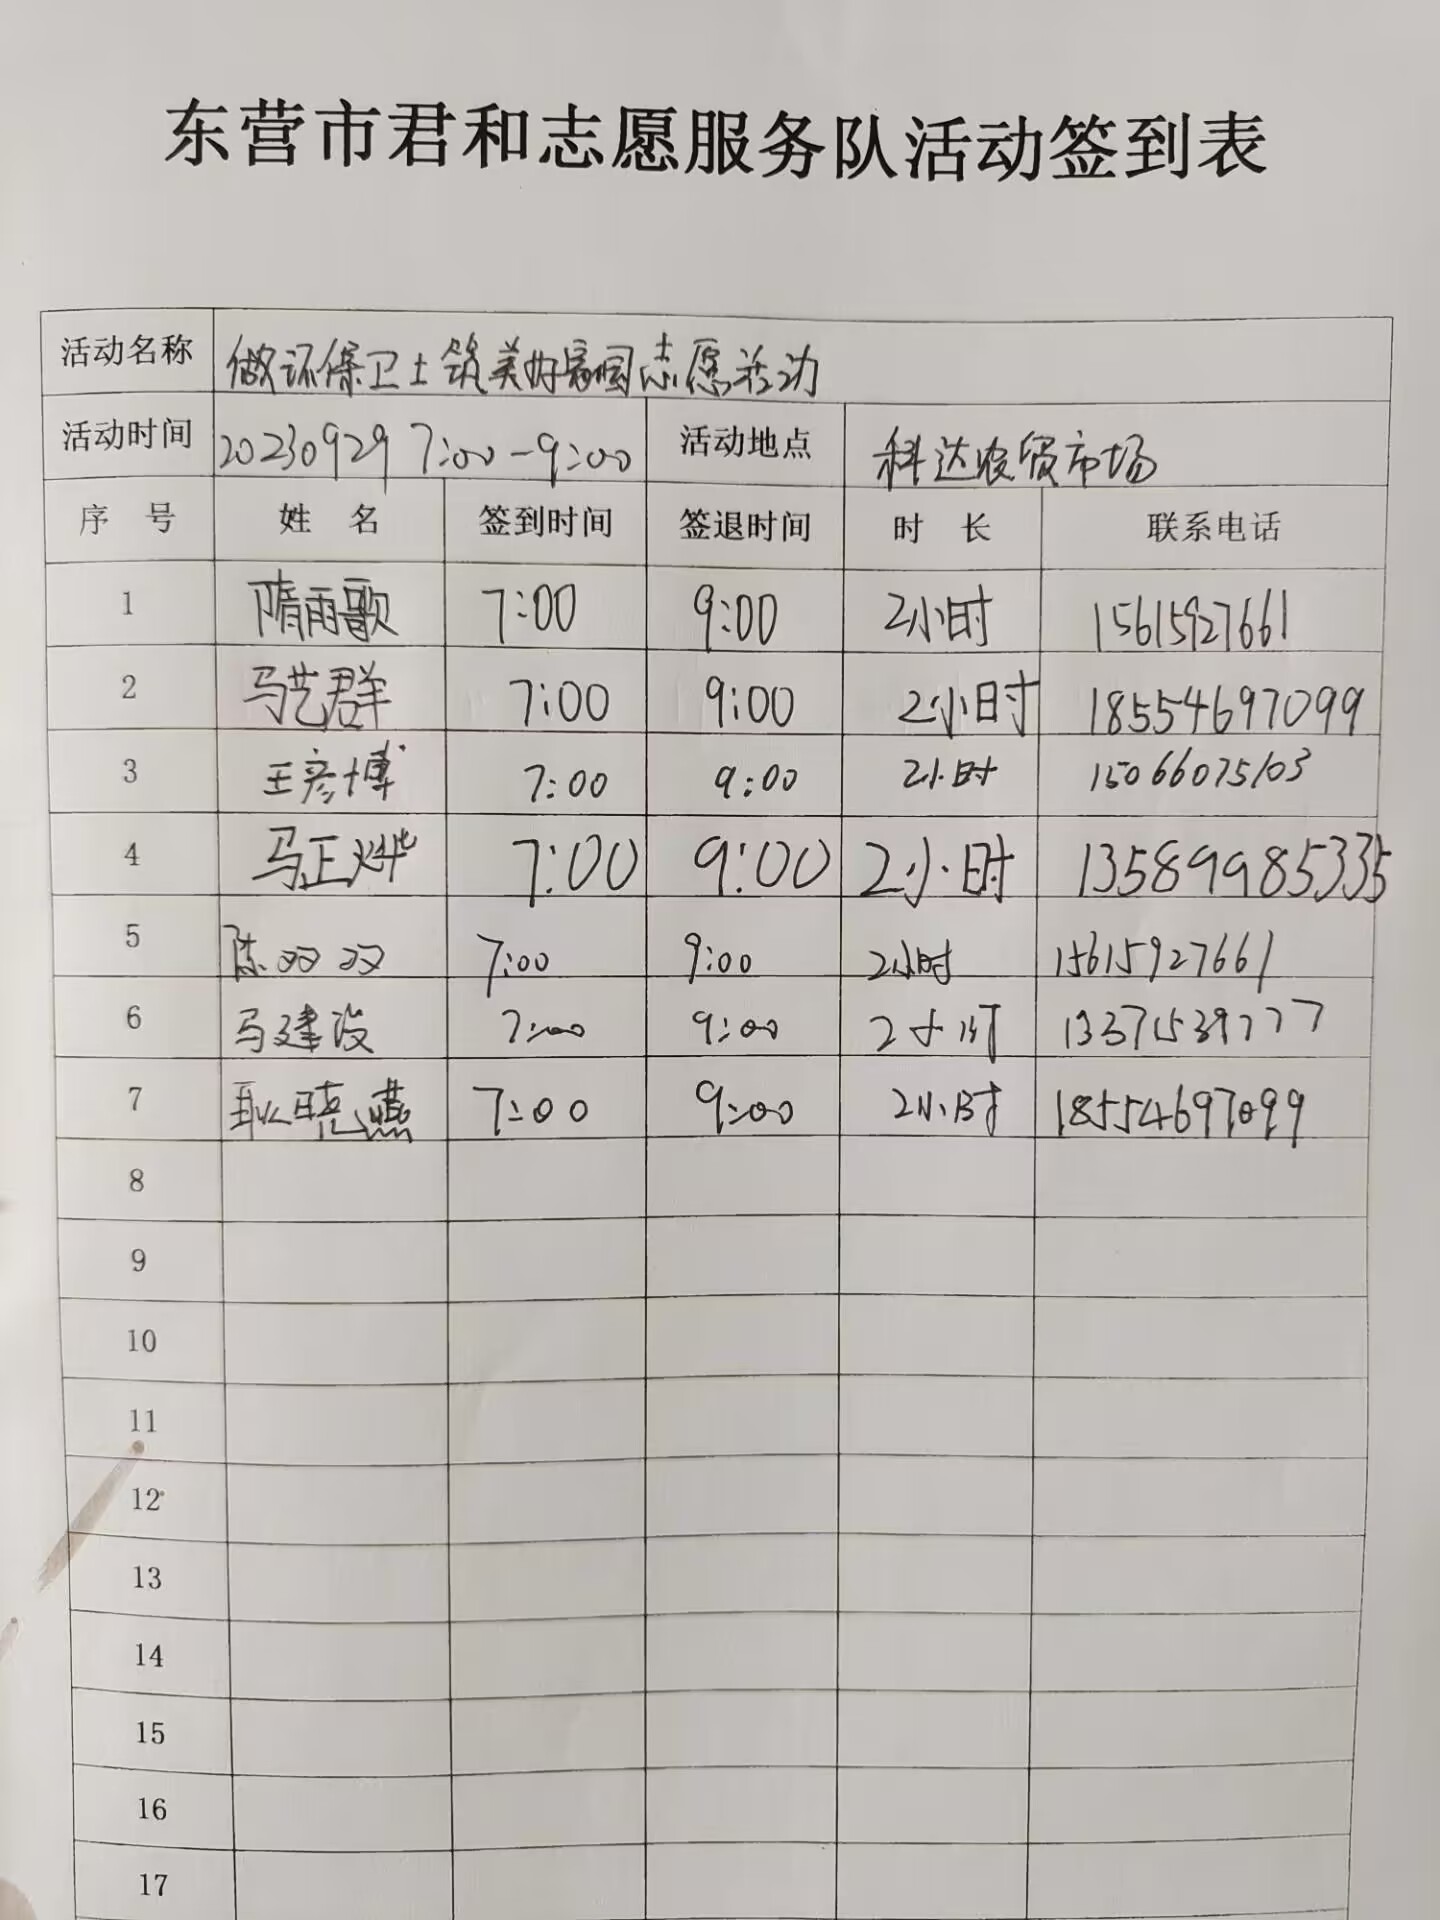 东营市君和志愿服务队活动签到表
活动名称 做环保卫士筑美好家园志愿活动
活动时间 20230929 7:00-9:00 活动地点 科达农贸市场
序号 姓名 签到时间 签退时间 时长 联系电话
1 隋雨歌 7:00 9:00 2小时 15615927661
2 马艺群 7:00 9:00 2小时 18554697099
3 王彦博 7:00 9:00 2小时 15066075103
4 马正烨 7:00 9:00 2小时 13589985335
5 陈双双 7:00 9:00 2小时 15615927661
6 马建设 7:00 9:00 2小时 13371539777
7 耿晓燕 7:00 9:00 2小时 18554697099
8
9
10
11
12
13
14
15
16
17